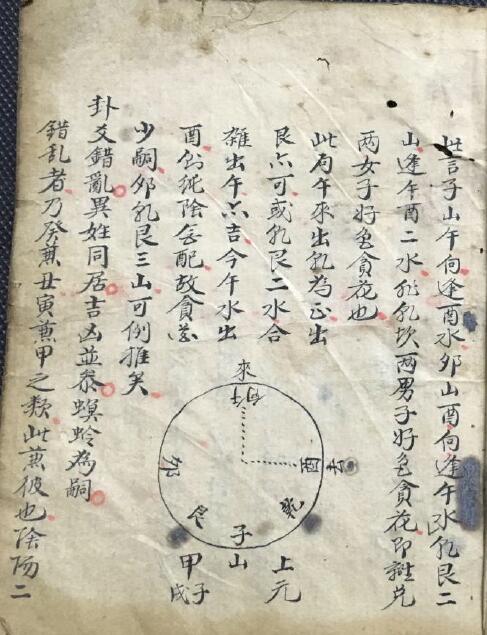 此言子山午向逢酉水卯山酉向逢午水乾艮二
山逢午酉二水非乾坎两男子好色貪花即離兌
两女子好色貪花也
此局午來出乾為正出
艮亦可或乾艮二水合
雜出午亦吉今午水出
酉純陰無配故貪花
少嗣卯乾艮三山可例推矣
卦爻錯亂異姓同居吉凶並叅螟蛉為嗣
錯乱者乃癸兼丑寅兼甲之類此兼彼也陰陽二
來
向午
酉
去
乾
卯
艮
子山
上元
甲子
戌